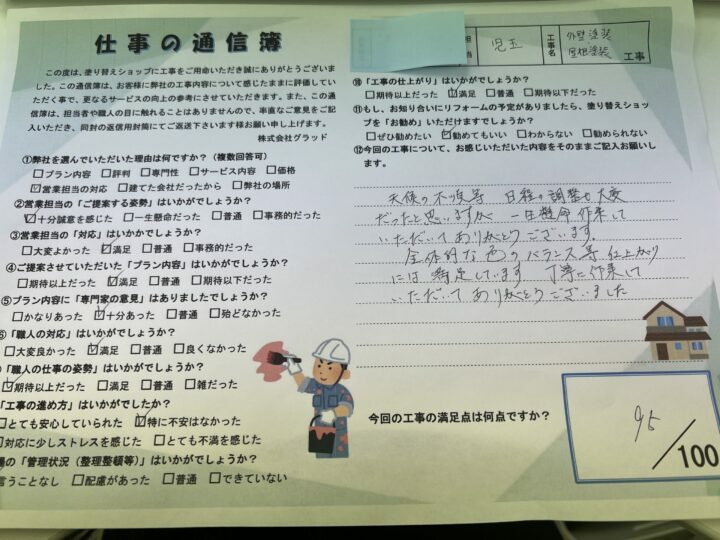 仕事の通信簿
この度は、塗り替えショップに工事をご用命いただき誠にありがとうございまし
た。この通信簿は、お客様に弊社の工事内容について感じたままに評価してい
ただく事で、更なるサービスの向上の参考にさせていただきます。また、この通
信簿は、担当者や職人の目に触れることはありませんので、率直なご意見をご記
入いただき、同封の返信用封筒にてご返送下さいます様お願い申し上げます。
株式会社グラッド
①弊社を選んでいただいた理由は何ですか？（複数回答可）
□プラン内容 □評判 □専門性 □サービス内容 □価格
☑営業担当の対応 □建てた会社だったから □弊社の場所
②営業担当の「ご提案する姿勢」はいかがでしょうか？
☑十分誠意を感じた □一生懸命だった □普通 □事務的だった
③営業担当の「対応」はいかかでしょうか？
□大変よかった ☑満足 □普通 □事務的だった
④ご提案させていただいた「プラン内容」はいかがでしょうか？
□期待以上だった ☑満足 □普通 □期待以下だった
⑤プラン内容に「専門家の意見」はありましたでしょうか？
□かなりあった ☑十分あった □普通 □殆どなかった
「職人の対応」はいかがでしょうか？
□大変良かった ☑満足 □普通 □良くなかった
「職人の仕事の姿勢」はいかがでしょうか？
☑期待以上だった □満足 □普通 □雑だった
「工事の進め方」はいかがでしたか？
□とても安心していられた ☑特に不安はなかった
□対応に少しストレスを感じた □とても不満を感じた
場の「管理状況（整理整頓等）」はいかがでしょうか？
言うことなし □配慮があった □普通 □できていない
担当 児玉 工事名 外壁塗装 屋根塗装 工事
⑩「工事の仕上がり」はいかがでしょうか？
□期待以上だった ☑満足 □普通 □期待以下だった
⑪もし、お知り合いにリフォームの予定がありましたら、塗り替えショッ
プを「お勧め」いただけますでしょうか？
□ぜひ勧めたい ☑勧めてもいい □わからない □勧められない
⑫今回の工事について、お感じいただいた内容をそのままご記入お願いし
ます。
天候の不順等 日程の調整も大変
だったと思いますが 一生懸命作業して
いただいてありがとうございます
全体的な色のバランス等 仕上がり
には満足しています 丁寧に作業して
いただいて ありがとうございました
今回の工事の満足点は何点ですか？
95/100